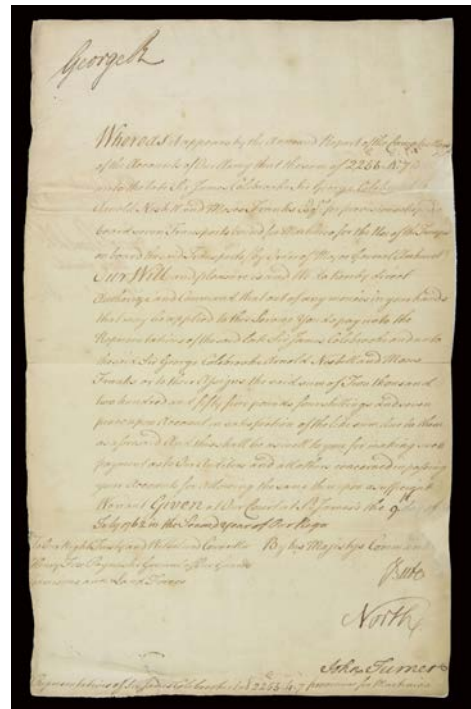 George R
Whereas it appears by the Annexed Report of the Comptrollers
of the Accounts of Our Army that the sum of 2255..4..7 is
unto the late Sir James Colebrooke Sir George Coleb
Arnold Nesbitt and Moses Franks Esqrs for provisions
board seven Transports bound for Martinico for the Use of the Troops
on board the said Transports, by Order of Major General
Our Will and pleasure is and We do hereby direct
Authorize and Command that out of any monies in your hands
that may be applied to this Service You do pay unto the
Representatives of the said late Sir James Colebrooke and unto
the said Sir George Colebrooke Arnold Nesbitt and Moses
Franks or to their Assigns the said sum of Two thousand
two hundred and fifty five pounds four shillings and seven
pence upon Account in satisfaction of the like sum due to them
as aforesaid And this shall be as well to you for making
payment as to Our Auditors and all others concerned in passing
your Accounts for allowing the same thereupon a sufficient
Warrant Given at Our Court at St James's the 9th day of
July 1762 in the Second Year of Our Reign
To Our Right Trusty and Welbeloved Councellor By his Majestys Command
Henry Fox Paymaster General of Our Guards
Garrisons and Land Forces
Bute
North
John Turner
Representatives of Sir James Colebrooke &ca 2255..4..7 provisions for Martinico